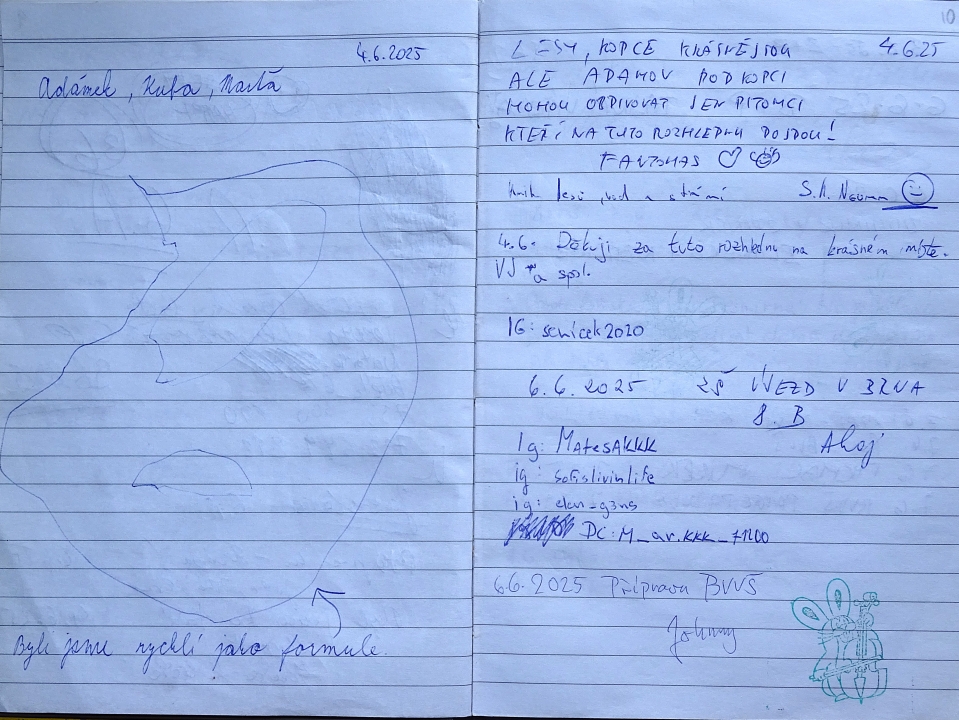 4.6.2025
Adámek, Kuba, Marťa
Byli jsme rychlí jako formule.
10
LESY, KOPCE KRÁSNÉ JSOU 4.6.25
ALE ADAMOV POD KOPCI
MOHOU OBDIVOVAT JEN PITOMCI
KTEŘÍ NA TUTO ROZHLEDNU DOJDOU!
FANTOMAS
lesů, vod a strání S.K. Neumann
4.6. Děkuji za tuto rozhlednu na krásném místě.
VJ a spol.
IG: senicek2020
6.6.2025 ZŠ ÚJEZD U BRNA
8.B
Ig: MatesAKKK Ahoj
ig: sofislivinlife
ig:
DC: M_ar.KKK_
6.6.2025 Příprava BVVŠ
Johnny